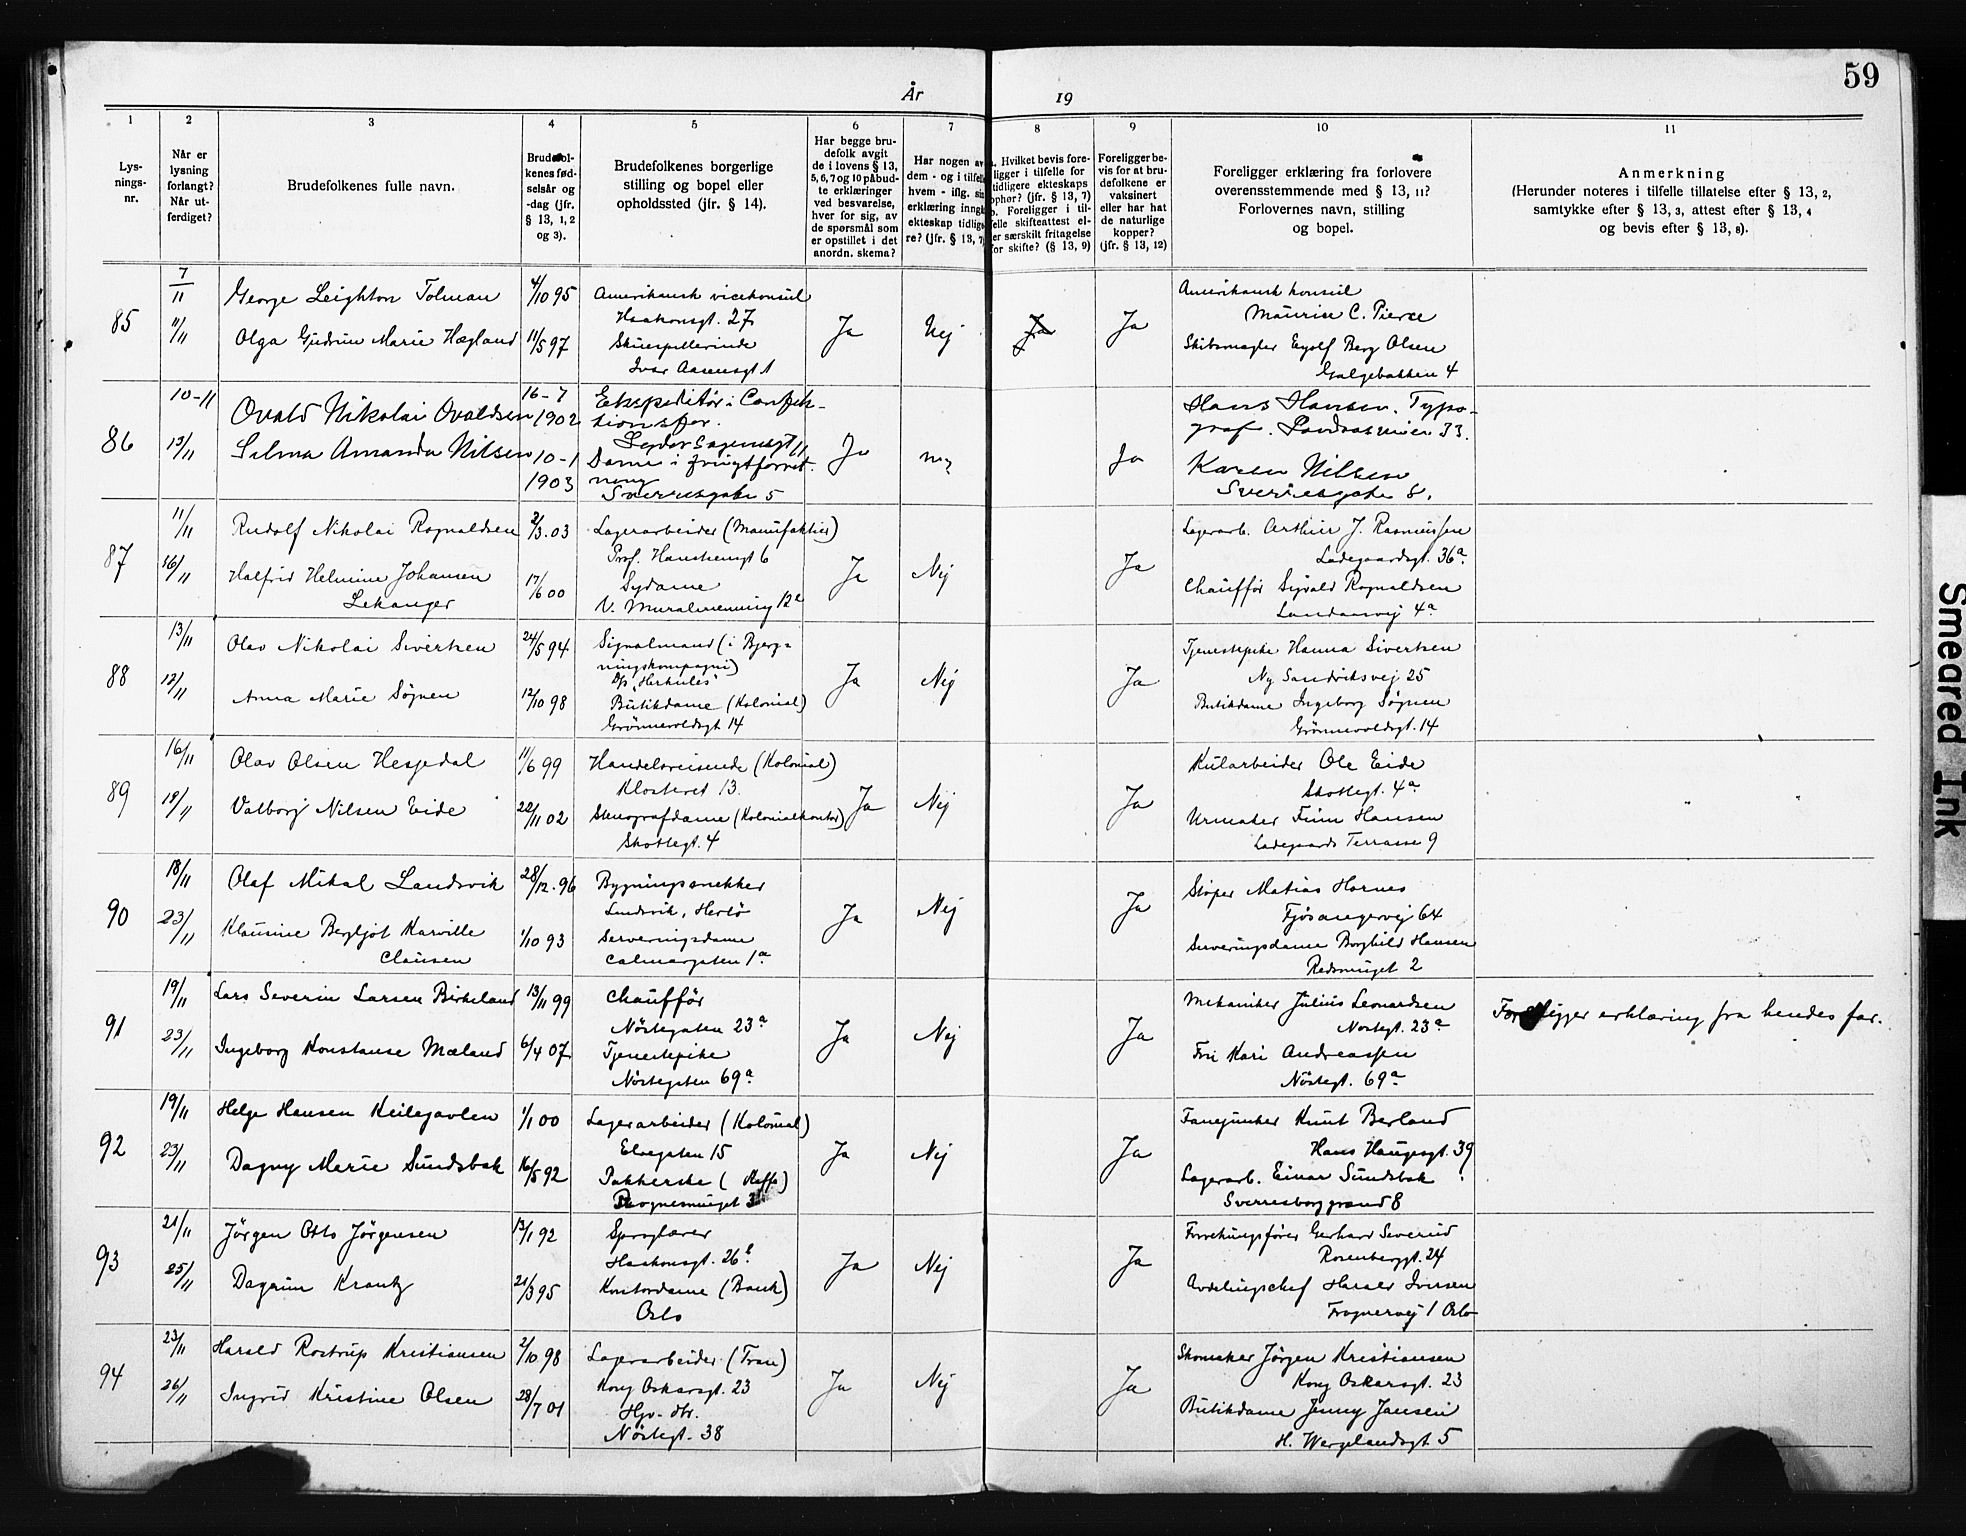 59
År
19
1
2
3
4
5
6
7
8
9
10
11
Lys-
nings-
nr.
Når er
lysning
forlangt?
Når ut-
ferdiget?
Brudefolkenes fulle navn.
Brudefol-
kenes fød-
selsår og
-dag (jfr.
§ 13, 1, 2
og 3).
Brudefolkenes borgerlige
stilling og bopel eller
opholdssted (jfr. § 14).
Har begge bru-
defolk avgit
de i lovens § 13,
5, 6, 7 og 10 påbud-
te erklæringer
ved besvarelse,
hver for sig, av
de spørsmål som
er opstillet i det
anordn. skema?
Har nogen av
dem - og i tilfelle
hvem - iflg. sin
erklæring inngå
ekteskap tidlige
re? (jfr. § 13, 7)
a. Hvilket bevis fore-
ligger i tilfelle for
tidligere ekteskaps
ophør? (jfr. § 13, 7)
b. Foreligger i til-
felle skifteattest el-
er særskilt fritagelse
for skifte? (§ 13, 9)
Foreligger be-
vis for at bru-
defolkene er
vaksinert
eller har hat
de naturlige
kopper?
(jfr. § 13, 12)
Foreligger erklæring fra forlovere
overensstemmende med § 13, 11?
Forlovernes navn, stilling
og bopel.
Anmerkning
(Herunder noteres i tilfelle tillatelse efter § 13, 2,
samtykke efter § 13, 3, attest efter § 13, 4
og bevis efter § 13, 8).
85
7/11
11/11
George Leighton Tolman
Olga Gudrun Marie Hægland
4/10 95
11/5 97
Amerikansk vicekonsul
Haakonsgt. 27
Skuespillerinde
Ivar Aasensgt 1
Ja
Nej
Ja
Ja
Amerikansk konsul
Maurice C. Pierce
Skibsmegler Eyolf Berg Olsen
Galgebakken 4
86
10-11
13/11
Ovald Nikolai Ovaldsen
Selma Amanda Nilsen
16-7
1902
10-1
1903
Ekspeditør i Confek-
tionsfor.
Lyder Sagensgt 11
Dame i frugtforret-
ning
Sverresgate 5
Ja
nej
Ja
Hans Hansen. Typo-
graf. Landaasveien 33.
Karen Nilsen
Sverresgate 8.
87
11/11
16/11
Rudolf Nikolai Rognaldsen
Halfrid Helmine Johansen
Lekanger
2/3.03
17/6 00
Lagerarbeider (Manufaktur)
Prof. Hansteensgt 6
Sydame
V. Muralmenning 12
Ja
Nej
Ja
Lagerarb. Arthur J. Rasmussen
Ladegaardsgt. 36a
Chauffør Sigvald Rognaldsen
Landaasvej 4a
88
13/11
12/11
Olav Nikolai Sivertsen
Anna Marie Søgnen
24/5 94
12/10 98
Signalmand (i Bjerg-
ningskompagni)
D/s "Herkules"
Butikdame (Kolonial)
Grønnevoldsgt 14
Ja
Nej
Ja
Tjenestepike Hanna Sivertsen
Ny Sandviksvej 25
Butikdame Ingeborg Søgnen
Grønnevoldsgt. 14
89
16/11
18/11
Olav Olsen Hesjedal
Valborg Nilsen Eide
11/6 99
22/11 02
Handelsreisende (Kolonial)
Klosteret 13.
Stenografdame (Kolonialkontor)
Skottegt. 4
Ja
Nej
Ja
Kularbeider Ole Eide
Skottegt. 4a
Urmaker Finn Hansen
Ladegaards Terrasse 9
90
18/11
23/11
Olaf Mikal Landsvik
Klausine Bergljot Karville
Clausen
28/12.96
1/10 93
Bygningssnekker
Landsvik, Herlø
Serveringsdame
Calmargaten 1a
Ja
Nej
Ja
Støper Matias Hornes
Fjøsangervej 64
Serveringsdame Borghild Hansen
Rødsmuget 2
91
19/11
23/11
Lars Severin Larsen Birkeland
Ingeborg Konstanse Mæland
13/11 99
6/4 07
Chauffør
Nøstegaten 23a
Tjenestepike
Nøstegaten 69a
Ja
Nej
Ja
Mekaniker Julius Leonardsen
Nøstegt. 23a
Fru Kari Andreassen
Nøstegt. 69a
Foreligger erklæring fra hendes far.
92
19/11
23/11
Helge Hansen Keilegavlen
Dagny Marie Sundsbak
1/1 00
16/5 92
Lagerarbeider (Kolonial)
Elvegaten 15
Pakkerske (Kaffe)
Ja
Nej
Ja
Fanejunker Knut Berland
Hans Haugesgt. 39
Lagerarb. Einar Sundsbak
Sverresborggrand 8
93
21/11
25/11
Jørgen Otto Jørgensen
Dagrun Krantz
13/1 92
21/3 95
Sproglærer
Haakonsgt. 26b
Kontordame (Bank)
Oslo
Ja
Nej
Ja
Forretningsfører Gerhard Severud
Rosenberggt. 24
Avdelingschef Harald Iversen
Frognervej 1 Oslo
94
23/11
26/11
Harald Rostrup Kristiansen
Ingrid Kristine Olsen
2/10 98
28/7 01
Lagerarbeider (Tran)
Kong Oskarsgt. 23
Hjv. dtr.
Nøstegt. 38
Ja
Nej
Ja
Skomaker Jørgen Kristiansen
Kong Oskarsgt. 23
Butikdame Jenny Jansen
H. Wergelandsgt 5
Smeared Ink